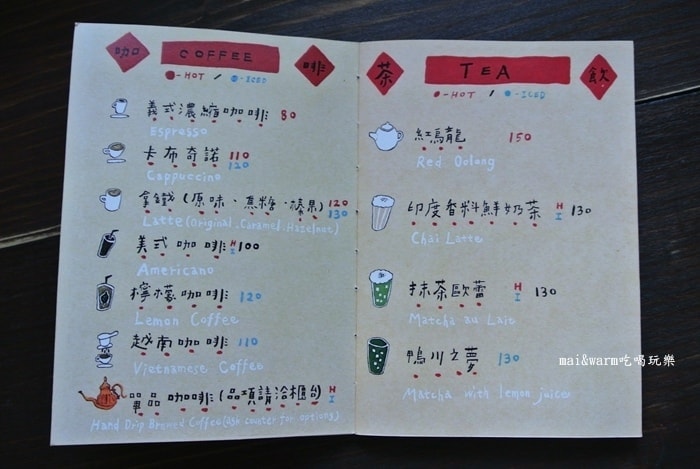 咖 COFFEE 啡
●-HOT / ●-ICED
義式濃縮咖啡 80
Espresso
卡布奇諾 110 120
Cappuccino
拿鐵(原味、焦糖、榛果) 120 130
Latte(Original.Caramel.Hazelnut)
美式咖啡 H I 100
Americano
檸檬咖啡 120
Lemon Coffee
越南咖啡 110
Vietnamese Coffee
單品咖啡(品項請洽櫃台) H I
Hand Drip Brewed Coffee(ask counter for options)
茶 TEA 飲
●-HOT / ●-ICED
紅烏龍 150
Red Oolong
印度香料鮮奶茶 H I 130
Chai Latte
抹茶歐蕾 H I 130
Matcha au Lait
鴨川之夢 130
Matcha with lemon juice
mai&warm吃喝玩樂